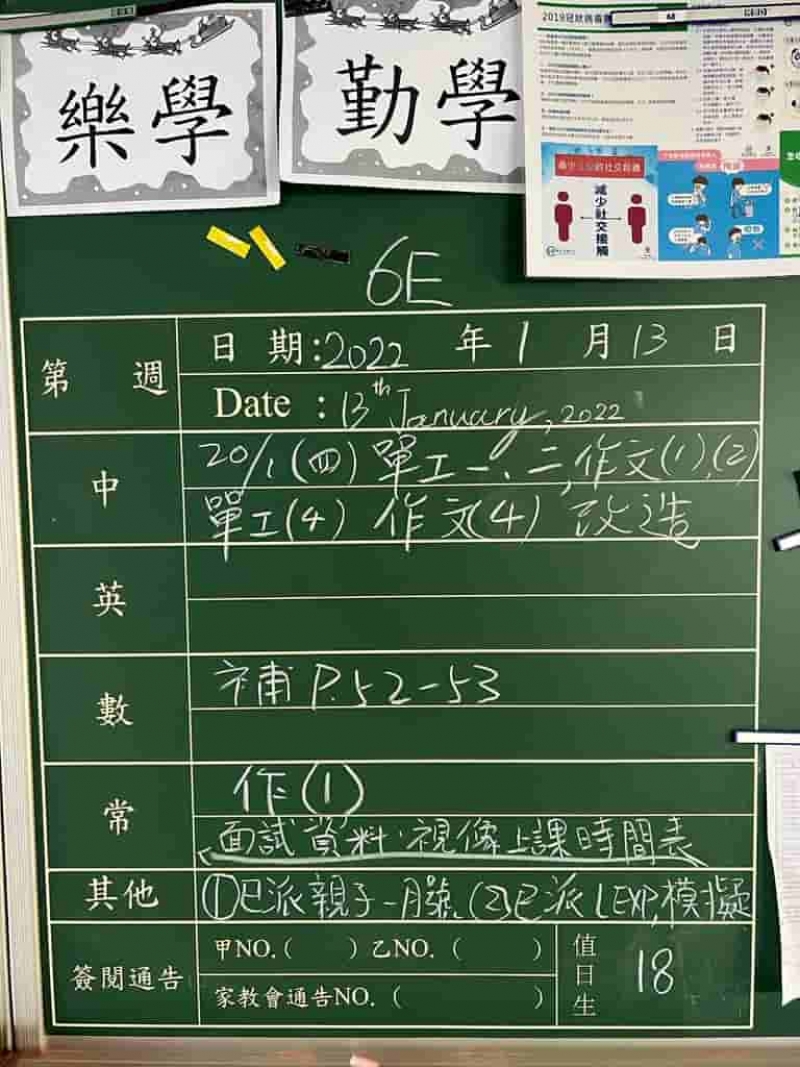 樂學
勤學
減少社交接觸
6E
第 週
日期:2022 年 1 月 13 日
Date : 13th January, 2022
中
20/1(四) 單工一、二,作文(1),(2)
單工(4) 作文(4) 改造
英
數
補 P.52-53
常
作(1)
面試資料,視像上課時間表
其他
①已派親子一月號,(2)已派LEXP,模擬
簽閱通告
甲NO.( ) 乙NO. ( )
家教會通告NO. ( )
值日生
18